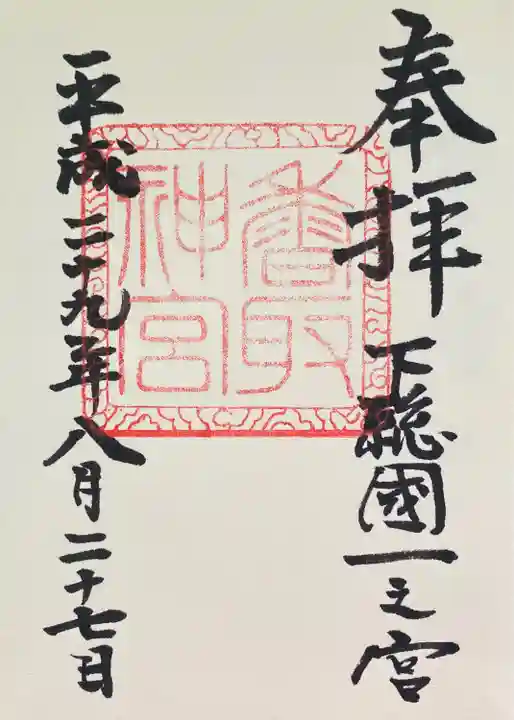 奉拝
下總國一之宮
香取神宮
平成二十九年八月二十七日